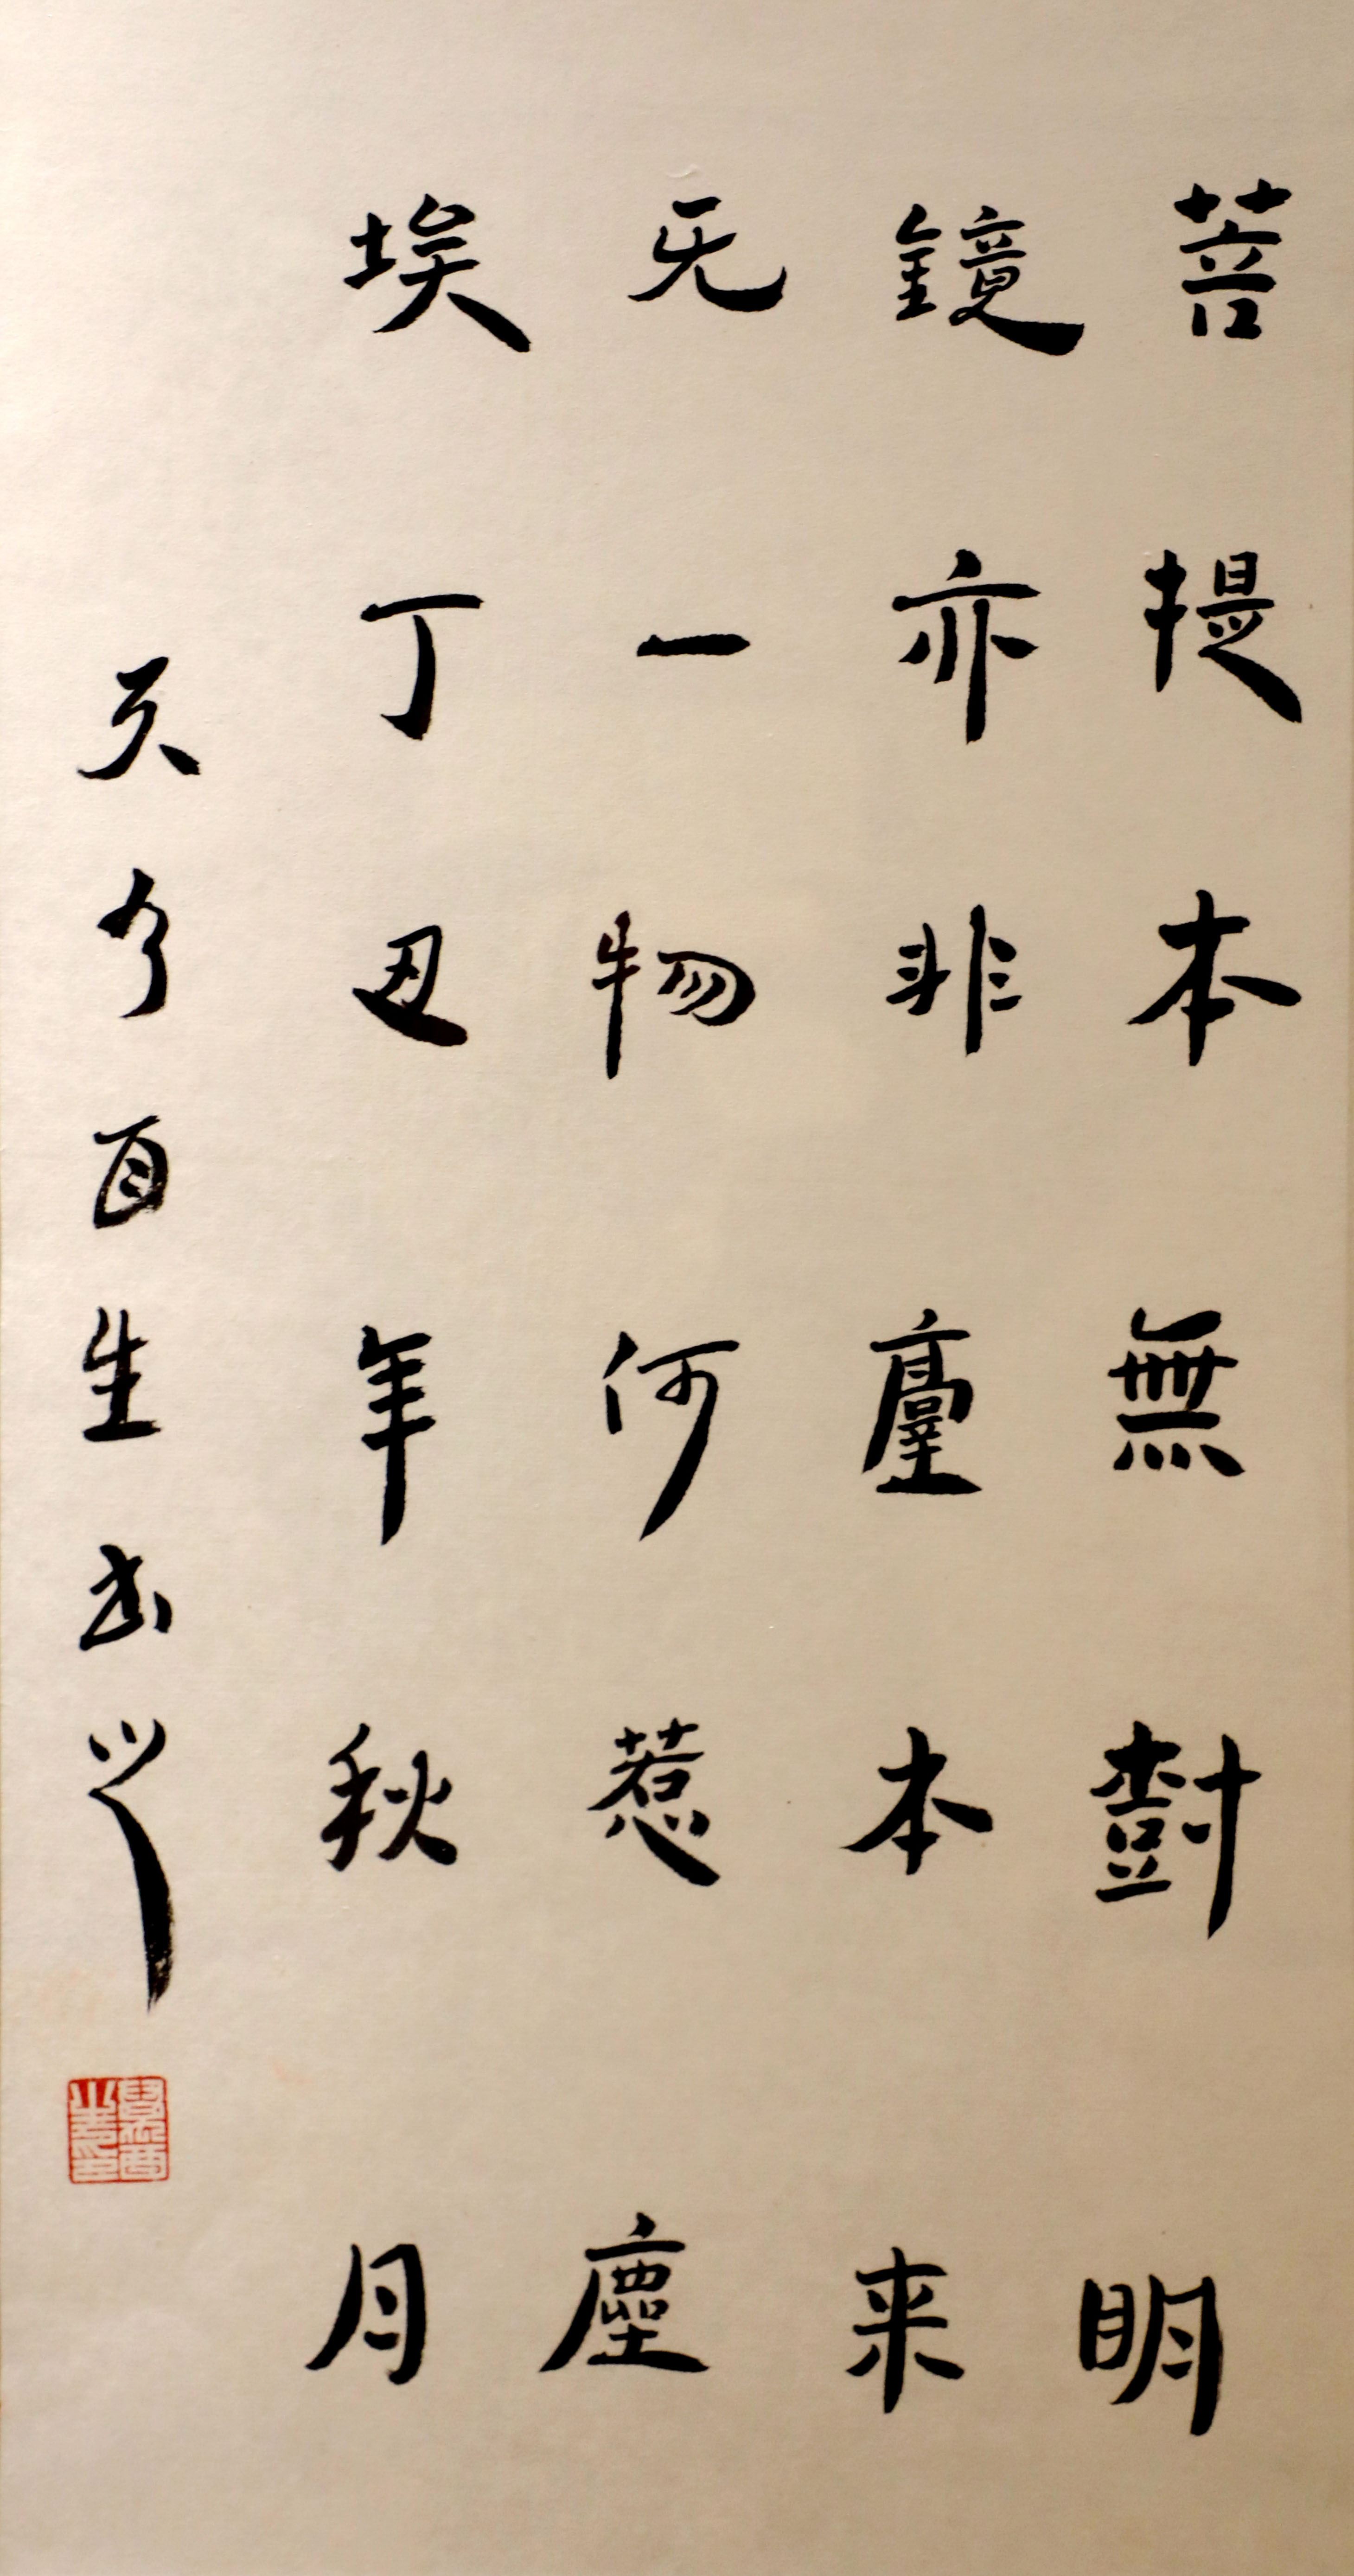 菩提本無樹明
鏡亦非臺本来
无一物何惹塵
埃丁丑年秋月
天 百生书